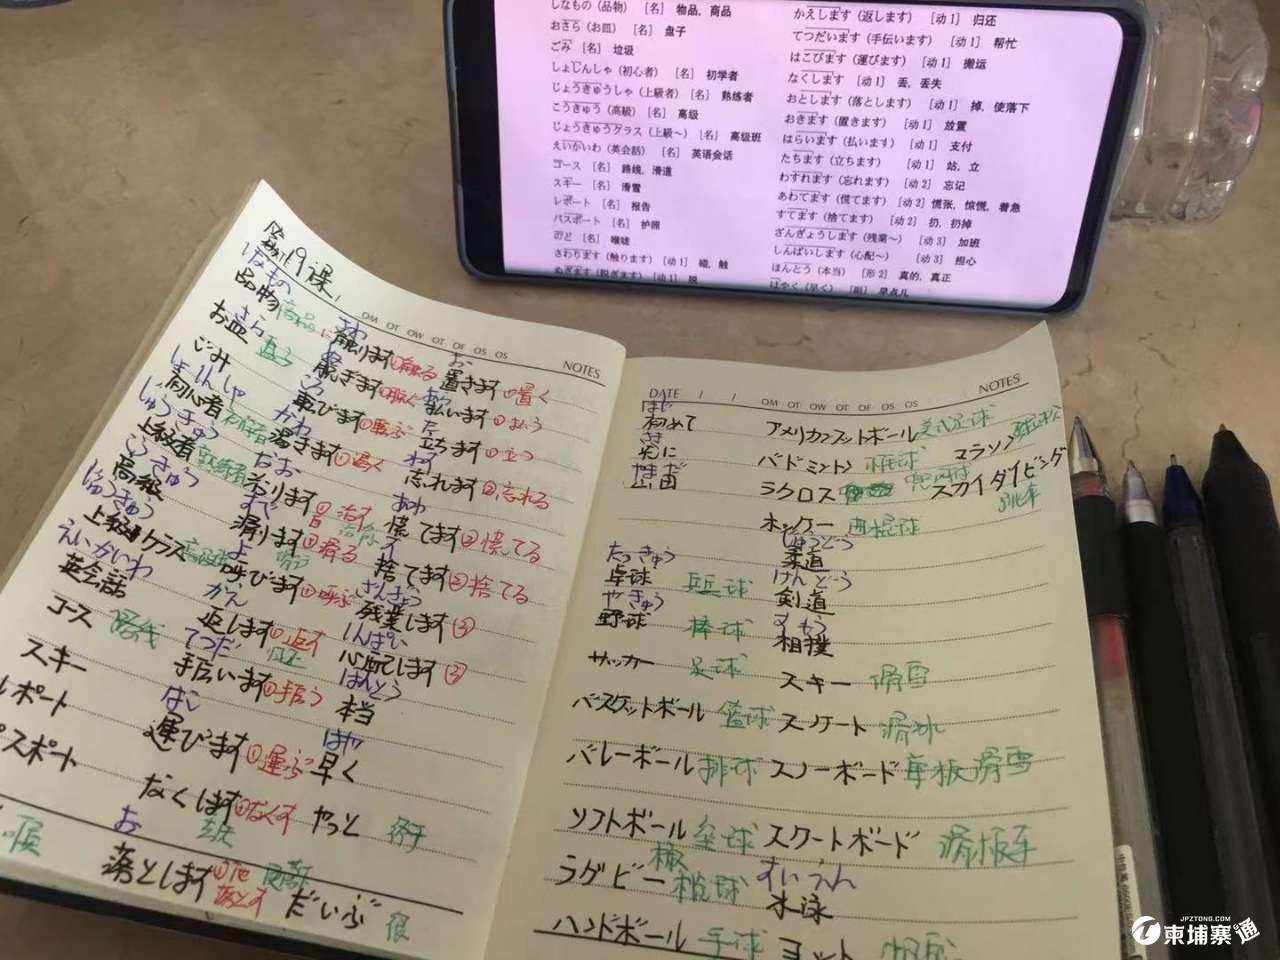 しなもの（品物） ［名］ 物品，商品
おさら（お皿） ［名］ 盘子
ごみ ［名］ 垃圾
しょしんしゃ（初心者） ［名］ 初学者
じょうきゅうしゃ（上級者） ［名］ 熟练者
こうきゅう（高級） ［名］ 高级
じょうきゅうクラス（上級～） ［名］ 高级班
えいかいわ（英会話） ［名］ 英语会话
コース ［名］ 路线，滑道
スキー ［名］ 滑雪
レポート ［名］ 报告
パスポート ［名］ 护照
のど ［名］ 喉咙
さわります（触ります） ［动1］ 碰，触
ぬぎます（脱ぎます） ［动1］ 脱
かえします（返します） ［动1］ 归还
てつだいます（手伝います） ［动1］ 帮忙
はこびます（運びます） ［动1］ 搬运
なくします ［动1］ 丢，丢失
おとします（落とします） ［动1］ 掉，使落下
おきます（置きます） ［动1］ 放置
はらいます（払います） ［动1］ 支付
たちます（立ちます） ［动1］ 站，立
わすれます（忘れます） ［动2］ 忘记
あわてます（慌てます） ［动2］ 慌张，惊慌，着急
すてます（捨てます） ［动2］ 扔，扔掉
ざんぎょうします（残業～） ［动3］ 加班
しんぱいします（心配～） ［动3］ 担心
ほんとう（本当） ［形2］ 真的，真正
はやく（早く） ［副］ 早点儿
第19课
OM OT OW OT OF OS OS
NOTES
しなもの
品物 商品
さら
お皿 盘子
ごみ
しょしんしゃ
初心者 初学者
じょうきゅう
上級者 熟练者
こうきゅう
高級
じょうきゅう
上級クラス 高级班
えいかいわ
英会話
コース 路线
スキー
レポート
パスポート
喉
さわ
触ります ①触る
脱ぎます ①脱ぐ
ころ
転びます ①転ぶ
かわ
渇きます ①渇く
なお
すべ
滑ります ①滑る
よ
呼びます ①呼ぶ
かえ
返します
てつだ
手伝います ①手伝う
はこ
運びます ①運ぶ
なくします ①なくす
お
落とします ①落とす
お
置きます ①置く
払います ①払う
た
立ちます ①立つ
わす
忘れます ②忘れる
あわ
慌てます ②慌てる
す
捨てます ②捨てる
ざんぎょう
残業します ③
しんぱい
心配します ③
ほんとう
本当
はや
早く
やっと 终于
だいぶ 很
DATE / /
OM OT OW OT OF OS OS
NOTES
はじ
初めて
さき
先に
やまだ
山田
たっきゅう
卓球 乒乓球
やきゅう
野球 棒球
サッカー 足球
バスケットボール 篮球
バレーボール 排球
ソフトボール 垒球
ラグビー 橄榄球
ハンドボール 手球
アメリカンフットボール 美式足球
バドミントン 羽毛球
マラソン 马拉松
ラクロス
スカイダイビング
ホッケー 曲棍球
じゅうどう
柔道
けんどう
剣道
すもう
相撲
スキー 滑雪
スケート 滑冰
スノーボード 单板滑雪
スケートボード 滑板车
すいえい
水泳
ヨット 帆船
JPZTONG.COM
柬埔寨通